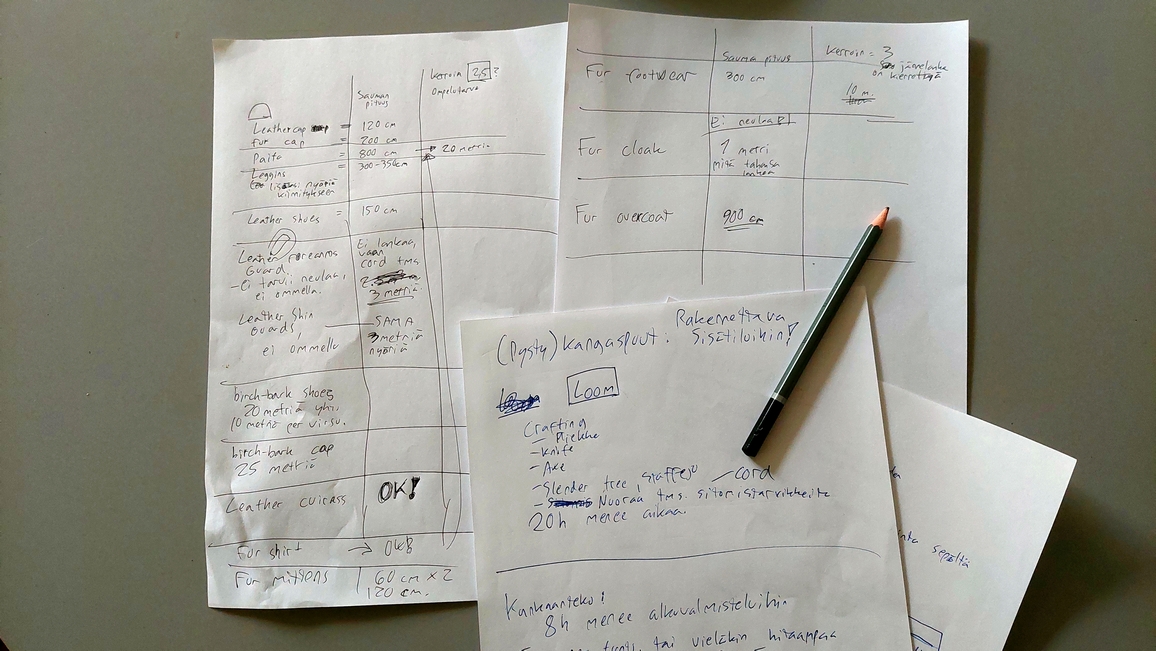 kerroin 2,5?
ompelutarve
Sauman
pituus
Leathercap = 120 cm
Fur cap = 200 cm
Paita = 800 cm → 20 metriä
Leggins = 300-350cm
lisäksi nyöriä
kiinnitykseen
Leather shoes = 150 cm
Leather forearms
guard.
- ei tarvii neulaa,
ei ommella.
Ei lankaa,
vaan
cord tms.
3 metriä
Leather shin
guards,
ei ommella
SAMA
3 metriä
nyöriä
birch-bark shoes
20 metriä yht.
10 metriä per virsu.
birch-bark cap
25 metriä
Leather cuirass OK!
Fur shirt → OK!
Fur mittens 60 cm x 2
120 cm.
Sauma pituus
Kerroin = 3
jännelanka
on kierrettyä
Fur footwear 300 cm
10 m.
Ei neulaa!
Fur cloak 1 metri
mitä tahansa
lankaa
Fur overcoat 900 cm
(Pysty)kangaspuut: Rakennettava
Sisätiloihin!
LOOM
Crafting
- Piekka
- Knife
- Axe
- Slender tree, staffeja - cord
- Nuoraa tms. sitomistarvikkeita
20h menee aikaa.
Kankaanteko!
8h menee alkuvalmisteluihin
tunti, tai vieläkin hitaampaa
sepältä